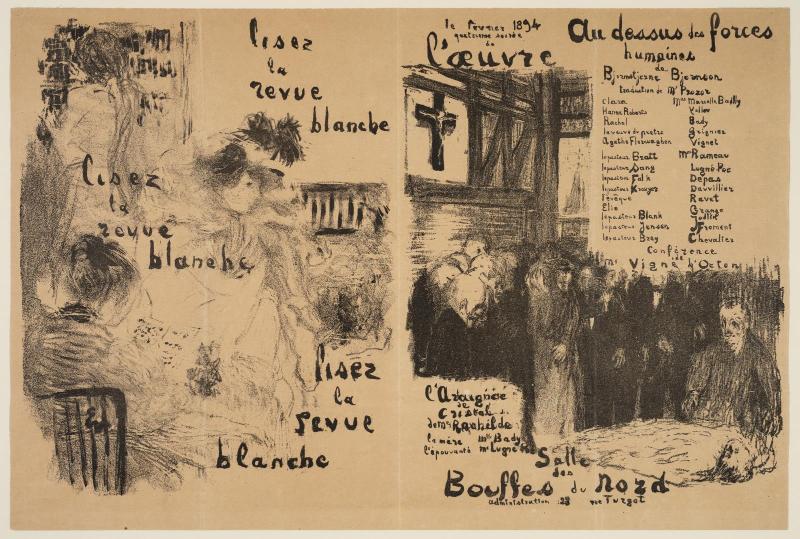 lisez
la
revue
blanche
lisez
la
revue
blanche
lisez
la
revue
blanche
le février 1894
quatrième soirée
de
l'œuvre
Au dessus des forces
humaines
de
Bjornstjerne Bjornson
traduction de Mr Prozor
Clara Mme Marcelle Bailly
Hanna Roberts
Rachel Bady
la veuve du pretre Grignier
Vignet
le pasteur Bratt Mr Rameau
le pasteur Sang Lugné-Poe
le pasteur Falk Depas
le pasteur Krœyer Dauvillier
l'évêque Ravet
Elie Grange
le pasteur Blank
le pasteur Jensen Froment
le pasteur Brey Chevalier
Conférence
de
Mr Vigné d'Octon
l'Araignée
de
Cristal
de Me Rachilde
la mère Mlle Bady
l'épouvanté Mr Lugné Poe
Salle
des
Bouffes du Nord
administration 23 rue Turgot